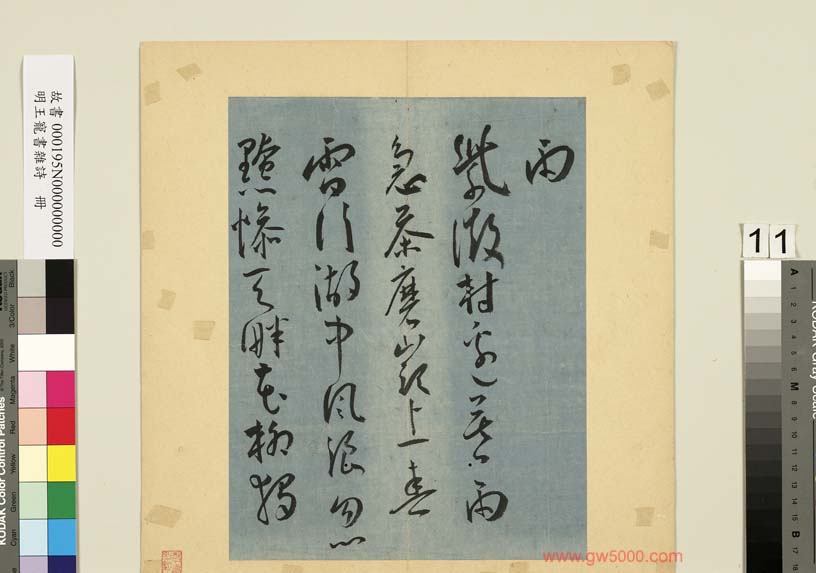 故書 000195N000000000
明王寵書雜詩 冊
雨
紫微村邊莫雨
急茶磨上春
行湖中風浪忽
黯慘天畔花柳獨
11
KODAK Color Control Patches
Black
3/Color
White
Magenta
Red
Yellow
Green
Cyan
A
1
2
3
4
5
6
M
8
9
10
11
12
13
14
15
B
17
18
KODAK Gray Scale
www.gw5000.com